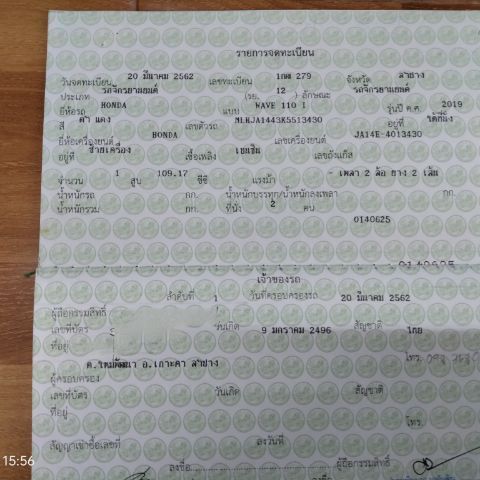 รายการจดทะเบียน
วันจดทะเบียน 20 มีนาคม 2562 เลขทะเบียน 1กผ 279 จังหวัด ลำปาง
ประเภท รถจักรยานยนต์ (รย. 12 ) ลักษณะ รถจักรยานยนต์
ยี่ห้อรถ HONDA แบบ WAVE 110 I รุ่นปี ค.ศ. 2019
สี ดำ แดง เลขตัวรถ MLHJA1443K5513430 อยู่ที่ ใต้ที่นั่ง
ยี่ห้อเครื่องยนต์ HONDA เลขเครื่องยนต์ JA14E-4013430
อยู่ที่ ซ้ายเครื่อง เชื้อเพลิง เบนซิน เลขถังแก๊ส
จำนวน 1 สูบ 109.17 ซีซี แรงม้า - เพลา 2 ล้อ ยาง 2 เส้น
น้ำหนักรถ กก. น้ำหนักบรรทุก/น้ำหนักลงเพลา กก.
น้ำหนักรวม กก. ที่นั่ง 2 คน
0140625
0140625
เจ้าของรถ
ลำดับที่ 1 วันที่ครอบครองรถ 20 มีนาคม 2562
ผู้ถือกรรมสิทธิ์
เลขที่บัตร วันเกิด 9 มกราคม 2496 สัญชาติ ไทย
ที่อยู่
โทร.
ต.ใหม่พัฒนา อ.เกาะคา ลำปาง
ผู้ครอบครอง
เลขที่บัตร วันเกิด สัญชาติ
ที่อยู่
โทร.
สัญญาเช่าซื้อเลขที่ ลงวันที่
ลงชื่อ ผู้ถือกรรมสิทธิ์
15:56